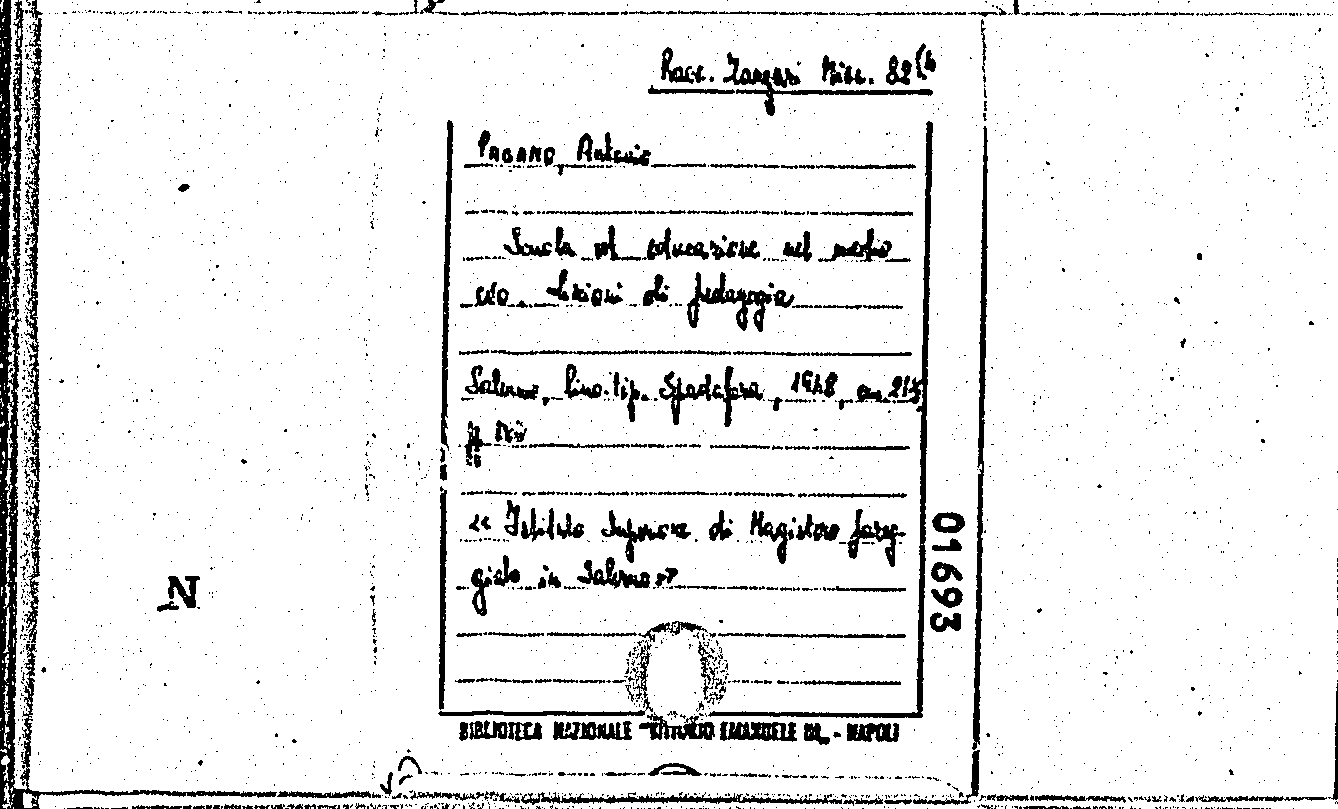 Racc. Zangari Misc. 82(4
PAGANO, Antonio
Scuola ed educazione nel medio
evo. Lezioni di pedagogia
Salerno, Lino-tip. Spadafora, 1948, cm.
pp
« Istituto Superiore di Magistero pareg-
giato in Salerno »
01693
N
BIBLIOTECA NAZIONALE "VITTORIO EMANUELE III„ - NAPOLI